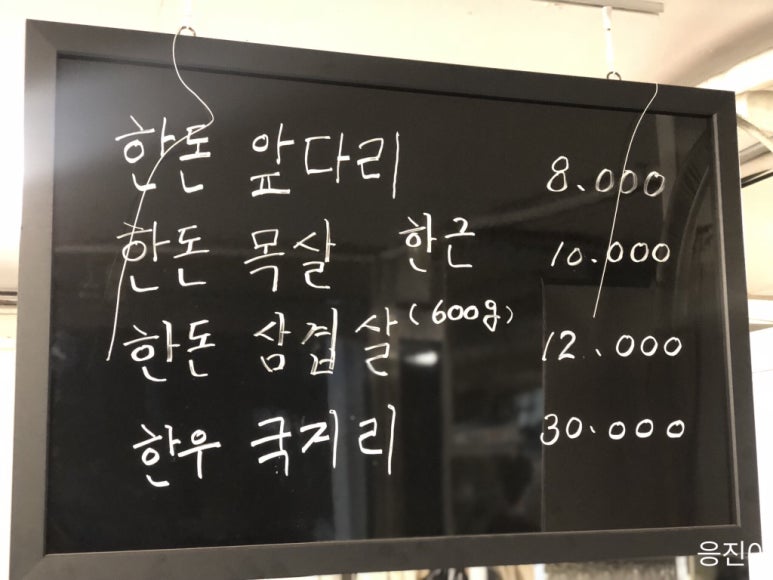 한돈 앞다리 8.000
한돈 목살 한근 10.000
한돈 삼겹살 (600g) 12.000
한우 국지리 30.000
응진